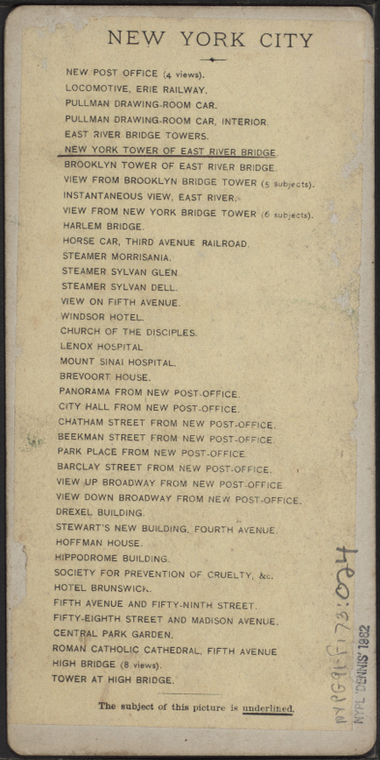 NEW YORK CITY
NEW POST OFFICE (4 views).
LOCOMOTIVE, ERIE RAILWAY.
PULLMAN DRAWING-ROOM CAR.
PULLMAN DRAWING-ROOM CAR, INTERIOR.
EAST RIVER BRIDGE TOWERS.
NEW YORK TOWER OF EAST RIVER BRIDGE.
BROOKLYN TOWER OF EAST RIVER BRIDGE.
VIEW FROM BROOKLYN BRIDGE TOWER (5 subjects).
INSTANTANEOUS VIEW, EAST RIVER.
VIEW FROM NEW YORK BRIDGE TOWER (6 subjects).
HARLEM BRIDGE.
HORSE CAR, THIRD AVENUE RAILROAD.
STEAMER MORRISANIA.
STEAMER SYLVAN GLEN.
STEAMER SYLVAN DELL.
VIEW ON FIFTH AVENUE.
WINDSOR HOTEL.
CHURCH OF THE DISCIPLES.
LENOX HOSPITAL
MOUNT SINAI HOSPITAL.
BREVOORT HOUSE.
PANORAMA FROM NEW POST-OFFICE.
CITY HALL FROM NEW POST-OFFICE.
CHATHAM STREET FROM NEW POST-OFFICE.
BEEKMAN STREET FROM NEW POST-OFFICE.
PARK PLACE FROM NEW POST-OFFICE.
BARCLAY STREET FROM NEW POST-OFFICE.
VIEW UP BROADWAY FROM NEW POST-OFFICE
VIEW DOWN BROADWAY FROM NEW POST-OFFICE.
DREXEL BUILDING.
STEWART'S NEW BUILDING, FOURTH AVENUE.
HOFFMAN HOUSE.
HIPPODROME BUILDING.
SOCIETY FOR PREVENTION OF CRUELTY, &c.
HOTEL BRUNSWICK.
FIFTH AVENUE AND FIFTY-NINTH STREET.
FIFTY-EIGHTH STREET AND MADISON AVENUE.
CENTRAL PARK GARDEN.
ROMAN CATHOLIC CATHEDRAL, FIFTH AVENUE
HIGH BRIDGE (8 views).
TOWER AT HIGH BRIDGE.
The subject of this picture is underlined.
NYPL 'DENNIS' 1862